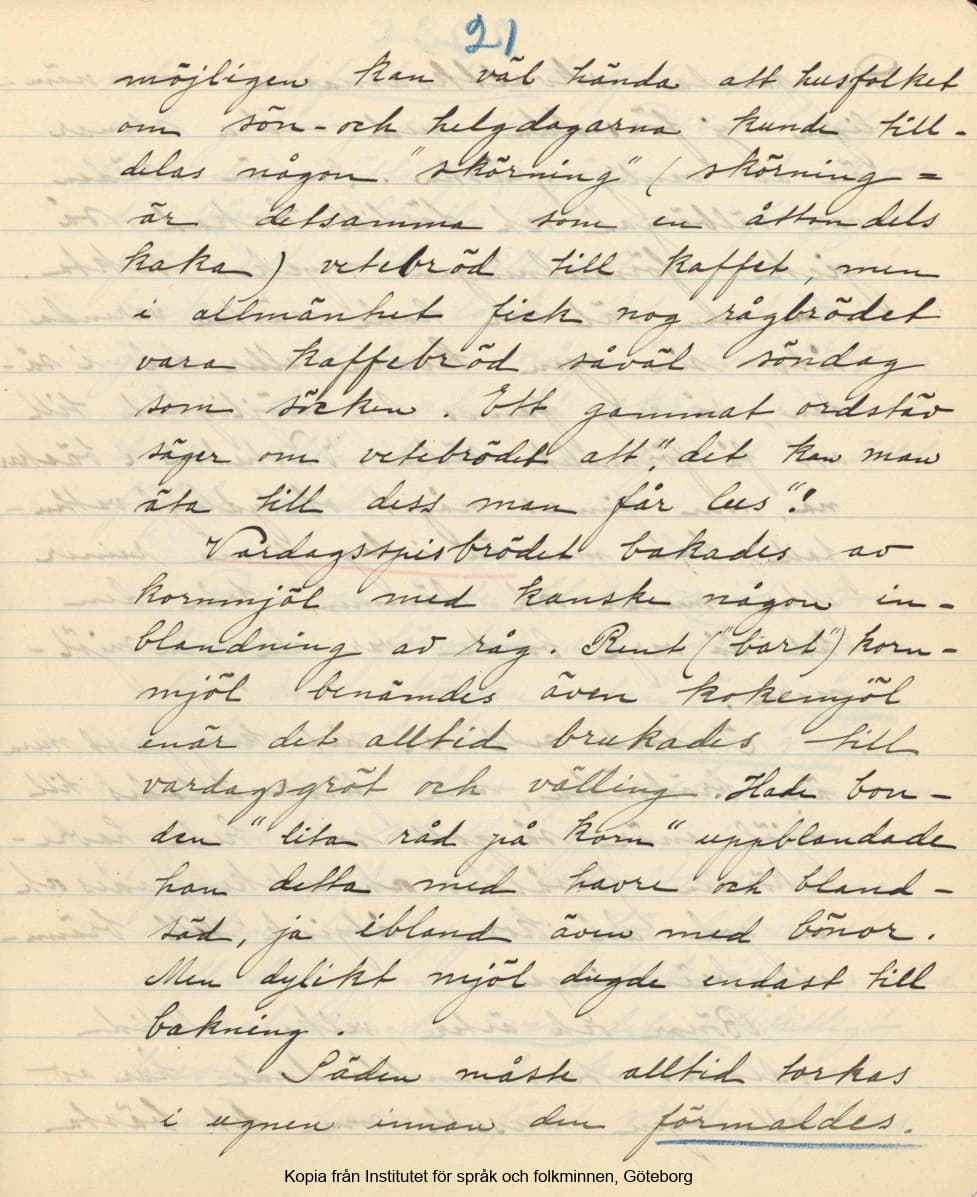 21
möjligen kan väl hända att husfolket
om sön- och helgdagarna kunde till-
delas någon "skörning" (skörning =
är detsamma som en åttondels
kaka) vetebröd till kaffet, men
i allmänhet fick nog rågbrödet
vara kaffebröd såväl söndag
som söcken. Ett gammat ordstäv
säger om vetebrödet att, "det kan man
äta till dess man får lus"!
Vardagsspisbrödet bakades av
kornmjöl med kanske någon in-
blandning av råg. Rent ("bart") korn-
mjöl benämdes även kokemjöl
enär det alltid brukades till
vardagsgröt och välling. Hade bon-
den "lita råd på korn" uppblandade
han detta med havre och bland-
säd, ja ibland även med bönor.
Men dylikt mjöl dugde endast till
bakning.
Säden måste alltid torkas
i ugnen innan den förmaldes.
Kopia från Institutet för språk och folkminnen, Göteborg